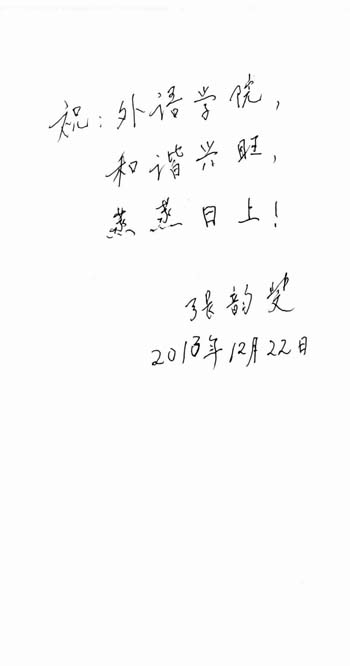 祝:外语学院,
和谐兴旺,
蒸蒸日上!
張韵
2013年12月22日